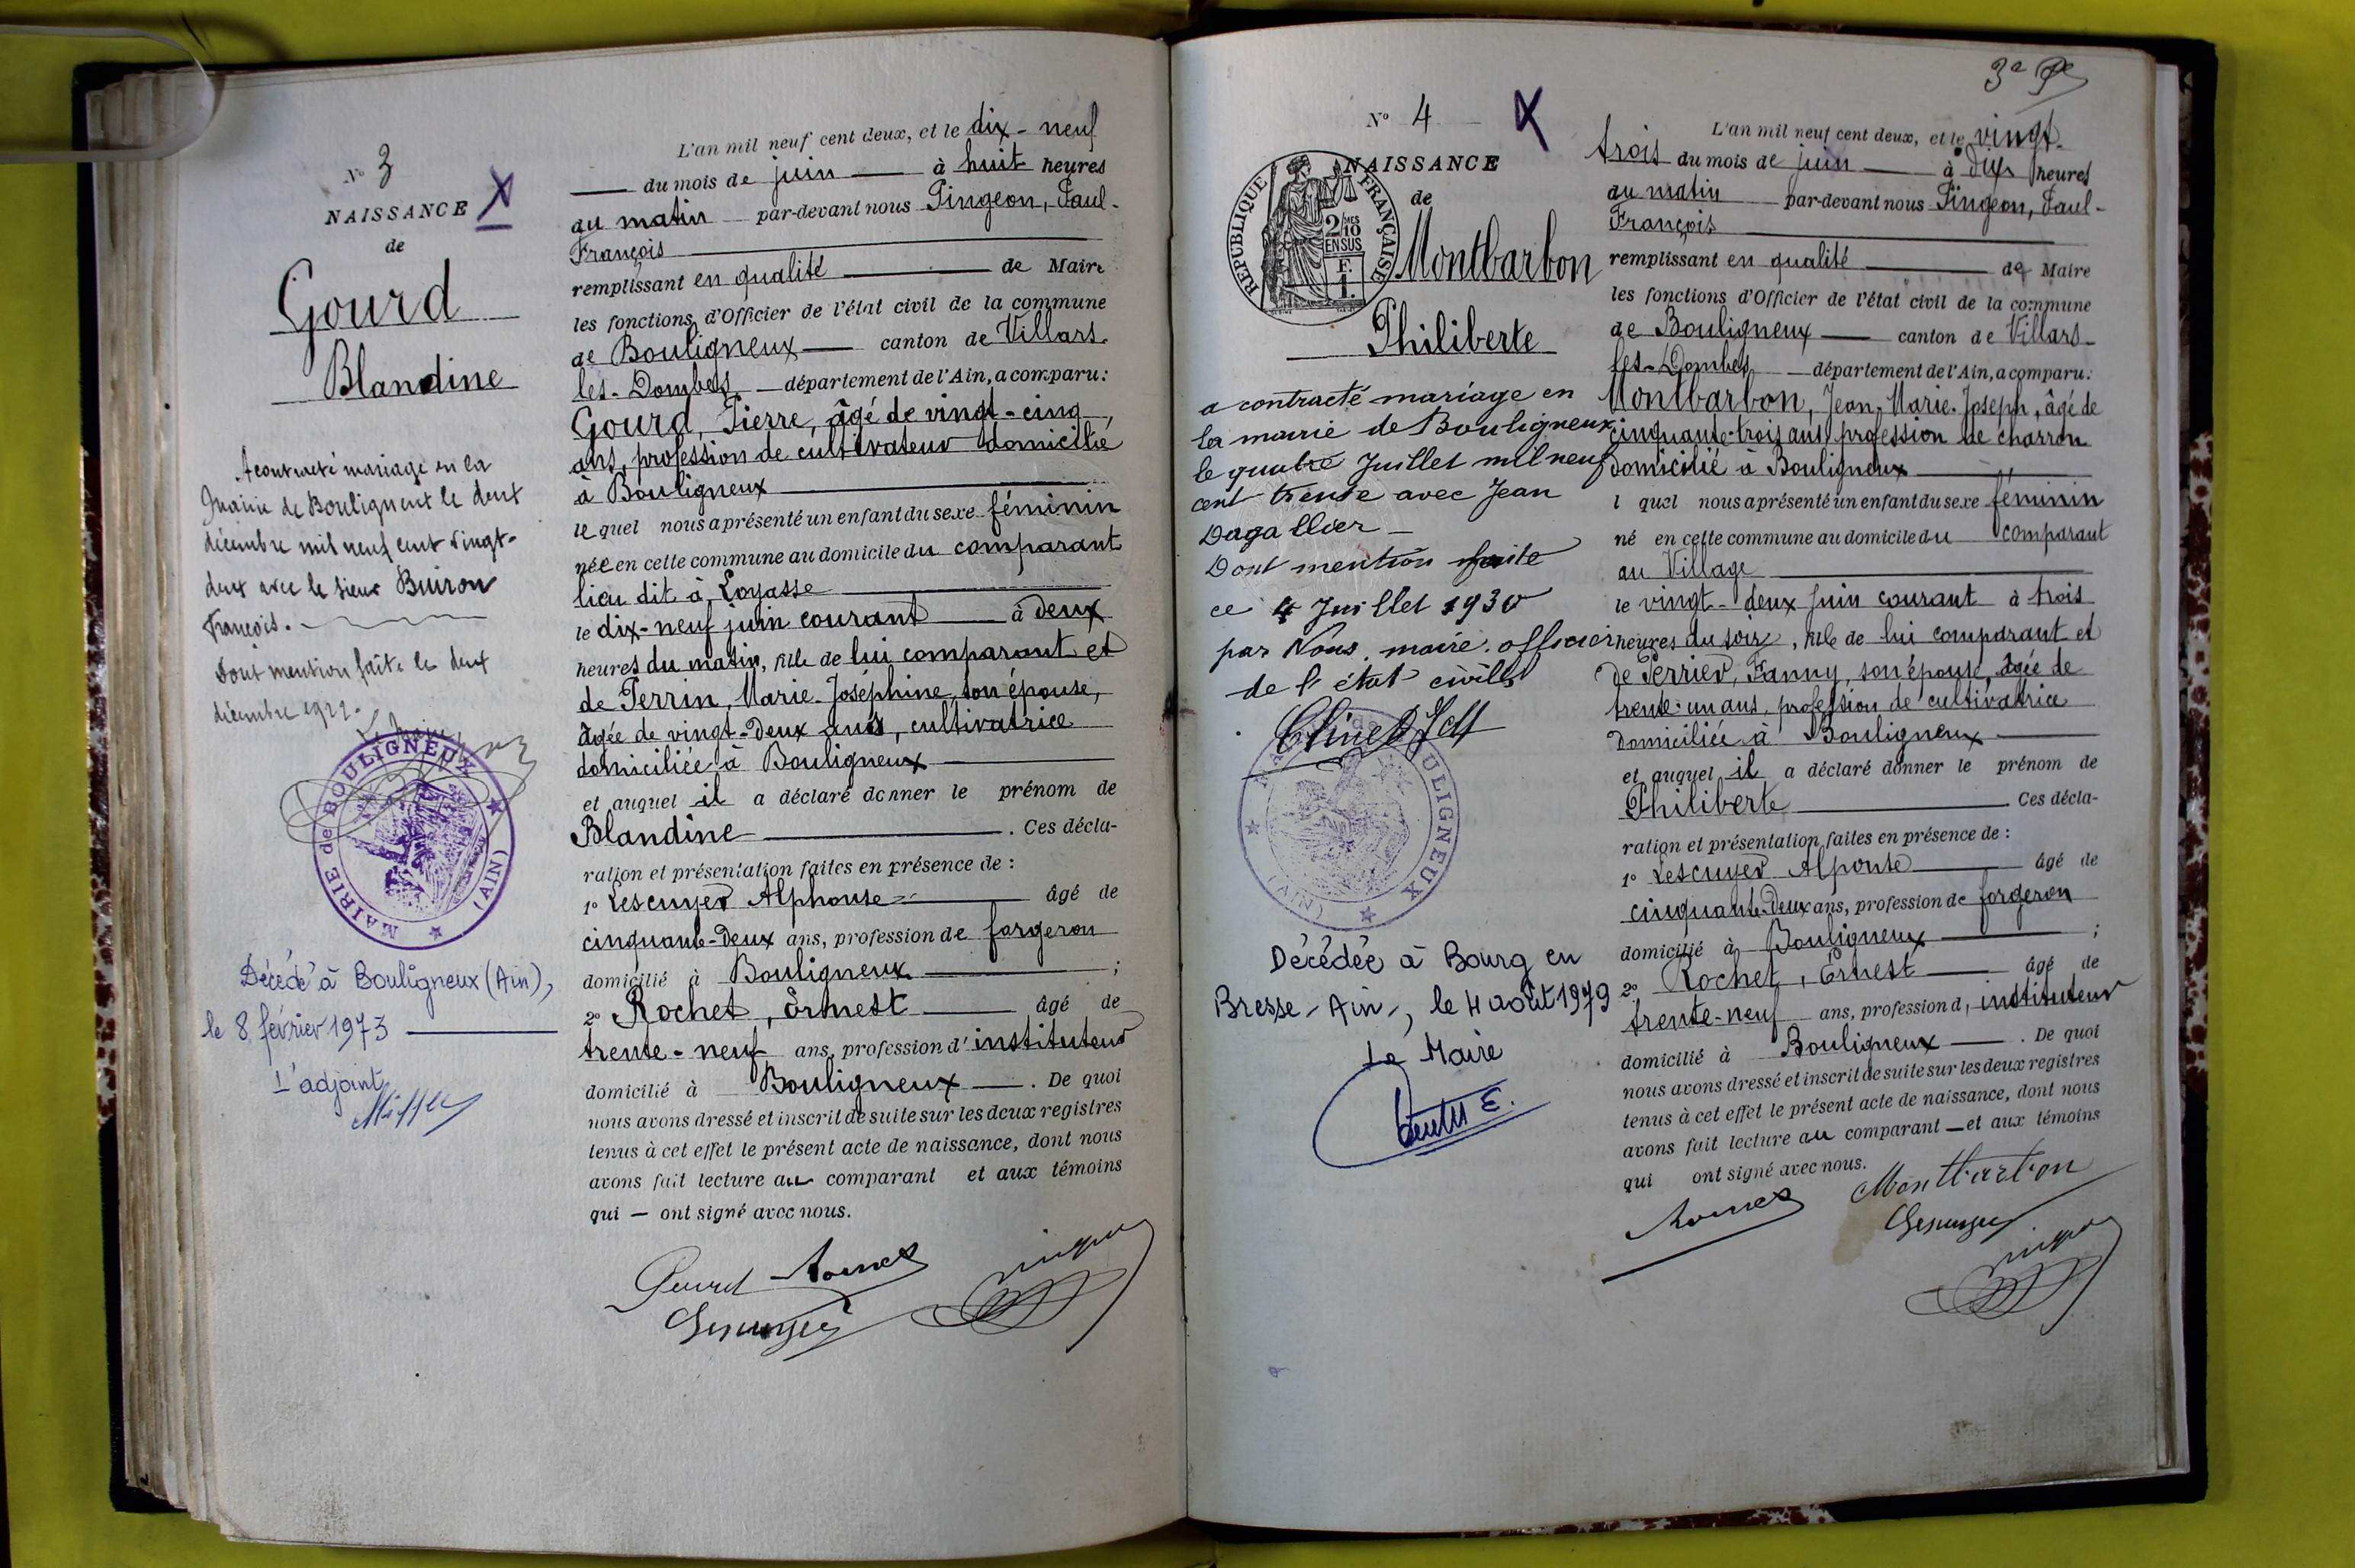 N° 3
NAISSANCE
de
Gourd
Blandine
A contracté mariage en la
Mairie de Bouligneux le deux
décembre mil neuf cent vingt-
deux avec le sieur Buiron
François.
Dont mention faite le deux
décembre 1922.
Le Maire,
MAIRIE de BOULIGNEUX (AIN)
Décédé à Bouligneux (Ain),
le 8 février 1973
L'adjoint
L'an mil neuf cent deux, et le dix-neuf
du mois de juin à huit heures
du matin par-devant nous Pingeon, Paul-
François
remplissant en qualité de Maire
les fonctions d'Officier de l'état civil de la commune
de Bouligneux canton de Villars-
les-Dombes département de l'Ain, a comparu:
Gourd, Pierre, âgé de vingt-cinq
ans, profession de cultivateur domicilié
à Bouligneux
le quel nous a présenté un enfant du sexe féminin
née en cette commune au domicile du comparant
lieu dit à Loyasse
le dix-neuf juin courant à deux
heures du matin, fille de lui comparant et
de Perrin, Marie-Joséphine, son épouse,
âgée de vingt-deux ans, cultivatrice
domiciliée à Bouligneux
et auquel il a déclaré donner le prénom de
Blandine . Ces décla-
ration et présentation faites en présence de :
1° Lescuyer Alphonse âgé de
cinquante-deux ans, profession de forgeron
domicilié à Bouligneux ;
2° Rochet, Ernest âgé de
trente-neuf ans, profession d'instituteur
domicilié à Bouligneux . De quoi
nous avons dressé et inscrit de suite sur les deux registres
tenus à cet effet le présent acte de naissance, dont nous
avons fait lecture au comparant et aux témoins
qui — ont signé avec nous.
Gourd
3e
N° 4
NAISSANCE
de
RÉPUBLIQUE FRANÇAISE
2/10 MES
EN SUS
F.
1.
Montbarbon
Philiberte
a contracté mariage en
la mairie de Bouligneux
le quatre Juillet mil neuf
cent trente avec Jean
Dagallier —
Dont mention faite
ce 4 Juillet 1930
par Nous, maire, officier
de l'état civil
MAIRIE de BOULIGNEUX (AIN)
Décédée à Bourg en
Bresse - Ain -, le 4 août 1979
Le Maire
L'an mil neuf cent deux, et le vingt-
trois du mois de juin à dix heures
du matin par-devant nous Pingeon, Paul-
François
remplissant en qualité de Maire
les fonctions d'Officier de l'état civil de la commune
de Bouligneux canton de Villars-
les-Dombes département de l'Ain, a comparu:
Montbarbon, Jean, Marie-Joseph, âgé de
cinquante-trois ans, profession de charron
domicilié à Bouligneux
l quel nous a présenté un enfant du sexe féminin
né en cette commune au domicile du comparant
au Village
le vingt-deux juin courant à trois
heures du soir, fille de lui comparant et
de Perrier, Fanny, son épouse, âgée de
trente-un ans, profession de cultivatrice
domiciliée à Bouligneux
et auquel il a déclaré donner le prénom de
Philiberte . Ces décla-
ration et présentation faites en présence de :
1° Lescuyer Alponse âgé de
cinquante-deux ans, profession de forgeron
domicilié à Bouligneux ;
2° Rochet, Ernest âgé de
trente-neuf ans, profession d, instituteur
domicilié à Bouligneux . De quoi
nous avons dressé et inscrit de suite sur les deux registres
tenus à cet effet le présent acte de naissance, dont nous
avons fait lecture au comparant — et aux témoins
qui ont signé avec nous.
Montbarbon